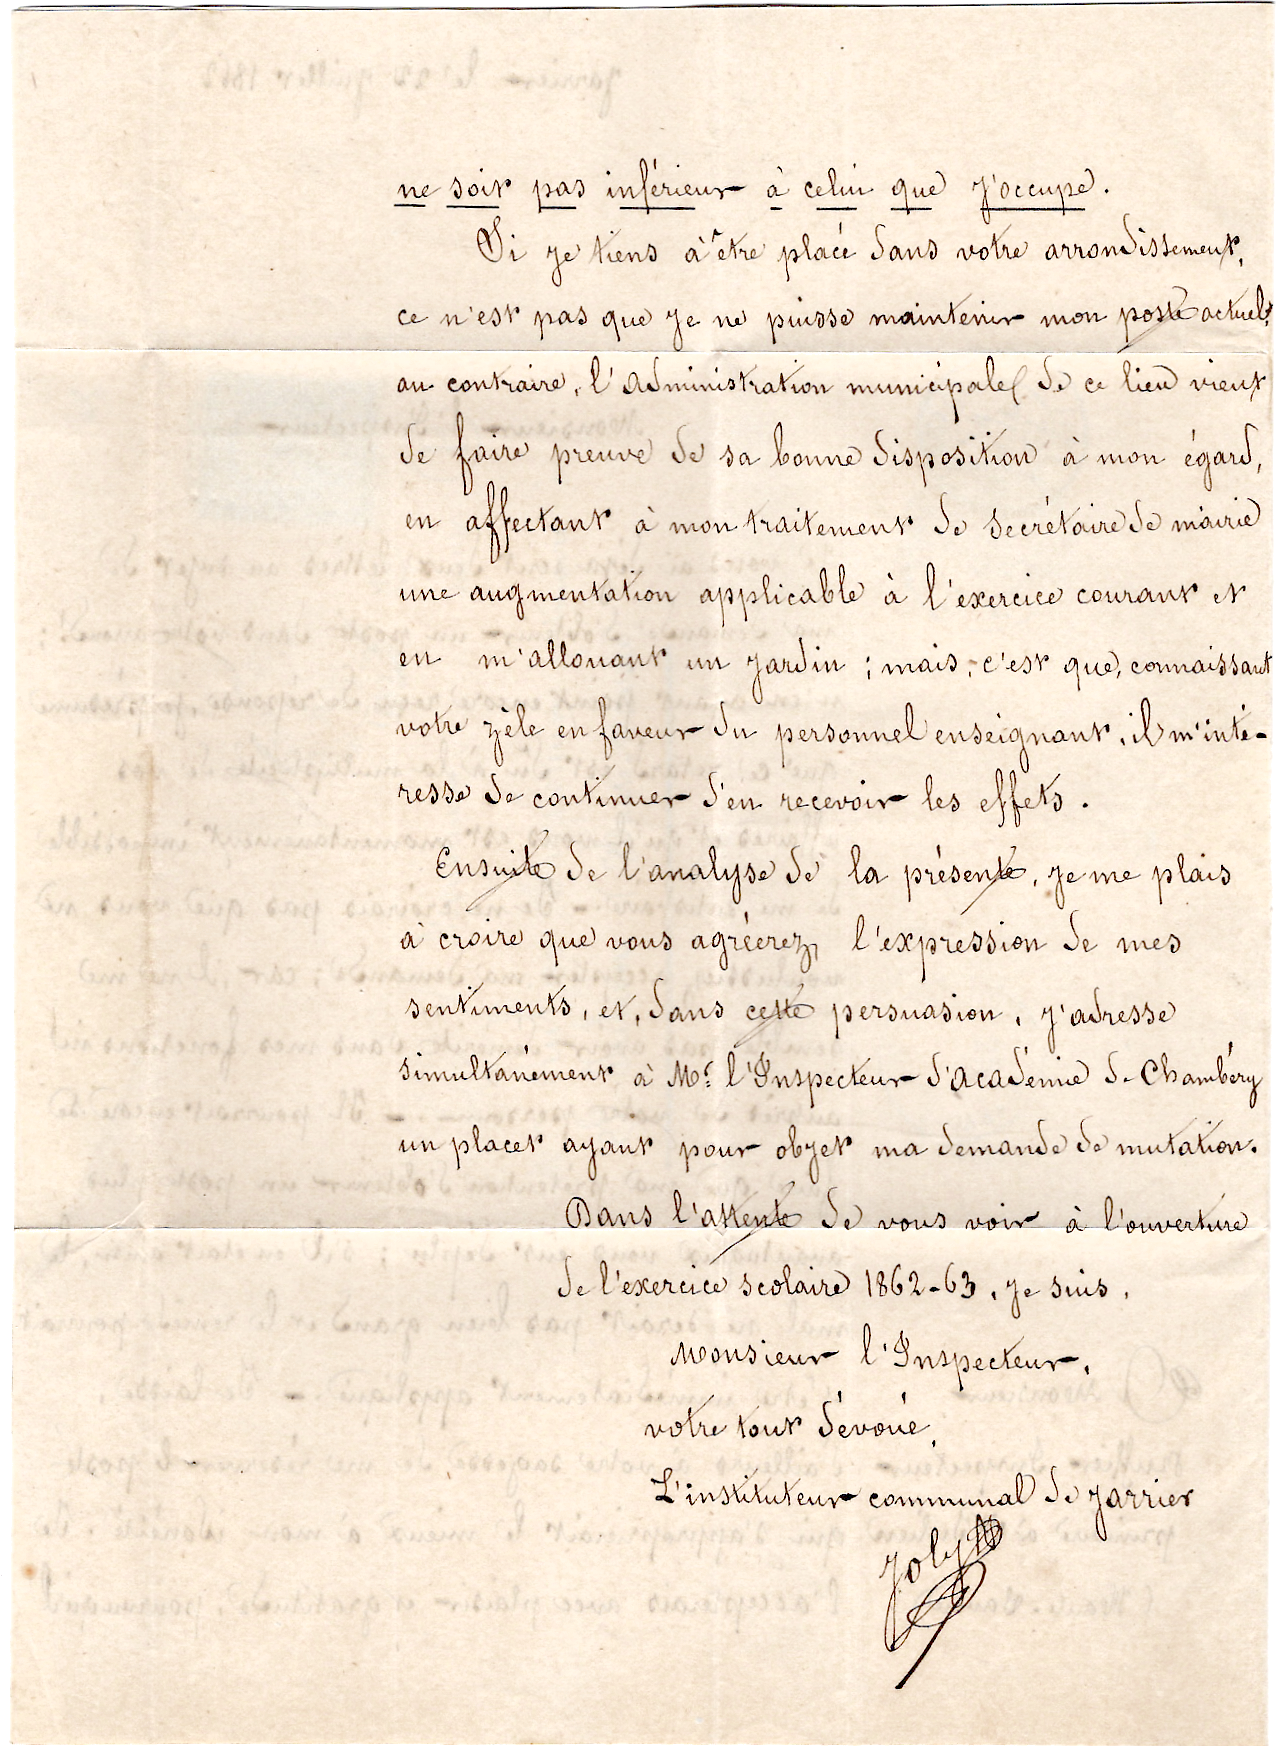 ne soit pas inférieur à celui que j'occupe.
Si je tiens à être placé dans votre arrondissement,
ce n'est pas que je ne puisse maintenir mon poste actuel;
au contraire, l'administration municipale de ce lieu vient
de faire preuve de sa bonne disposition à mon égard,
en affectant à mon traitement de secrétaire de mairie
une augmentation applicable à l'exercice courant et
en m'allouant un jardin ; mais, c'est que, connaissant
votre zèle en faveur du personnel enseignant, il m'inté-
resse de continuer d'en recevoir les effets.
Ensuite de l'analyse de la présente, je me plais
à croire que vous agréerez, l'expression de mes
sentiments, et, dans cette persuasion, j'adresse
simultanément à Mr. l'Inspecteur d'académie de Chambéry
un placet ayant pour objet ma demande de mutation.
Dans l'attente de vous voir à l'ouverture
de l'exercice scolaire 1862-63, je suis,
Monsieur l'Inspecteur,
votre tout dévoué,
L'instituteur communal de Jarrier
Joly